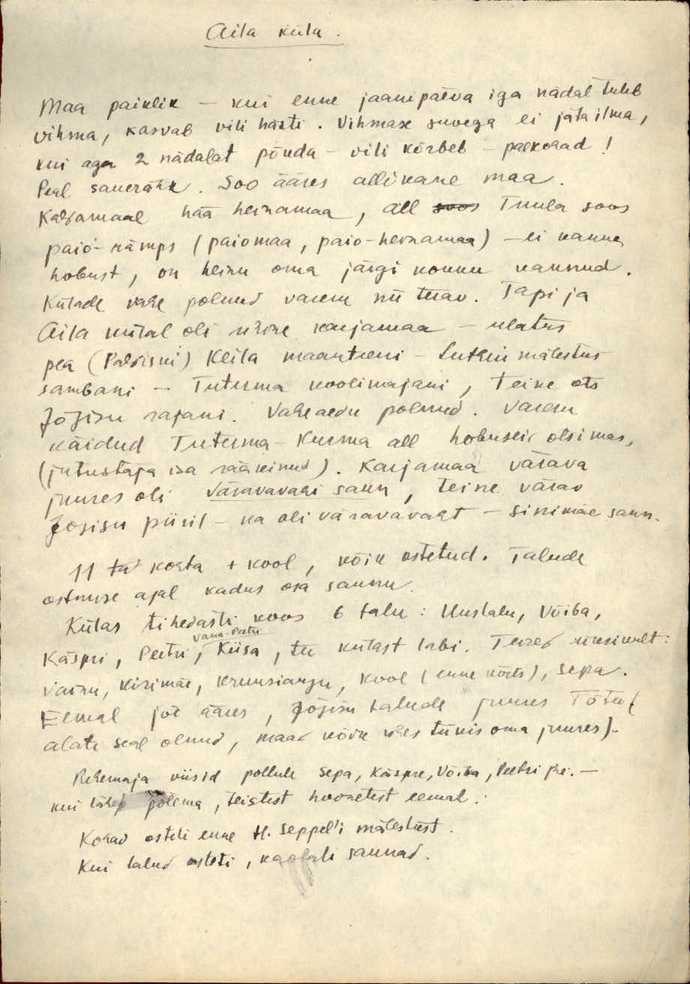 Aila küla.
Maa paiklik – kui enne jaanipäeva iga nädal tuleb
vihma, kasvab vili hästi. Vihmase suvega ei jäta ilma,
kui aga 2 nädalat põuda – vili kõrbeb – paekohad!
Peal sauerähk. Soo ääres allikane maa.
Karjamaal hää heinamaa, all soos Tuula soos
paio-rämps (paiomaa, paio-heinamaa) – ei kanna
hobust, on heinu oma järgi kokku kannud.
Külade vahe polnud varem nii terav. Tapi ja
Aila külal oli ühine karjamaa – ulatus
pea (Paldiski) Keila maanteeni – mälestus
sambani – Tutermaa koolimajani, teine ots
Jõgisu rajani. Vaheaedu polnud. Varem
käidud Tuterma – Kurma all hobuseid otsimas,
(jutustaja isa rääkinud). Karjamaa värava
juures oli väravavahi saun, teine värav
Jõgisu piiril – ka oli väravavaht – Sinimäe saun.
11 kohta + kool, kõik ostetud. Talude
ostmise ajal kadus osa saunu.
Külas tihedasti koos 6 talu: Uustalu, Võiba,
Käspri, Peetri, Vana-Peetri Kiisa, tee külast läbi. Teised
Vainu, Kirimäe, kool (enne), Sepa.
Eemal jõe ääres, Jõgisu talude juures Tõtu (
alati seal olnud, maad kõik ühes tükis oma juures).
Rehemaja viisid põllule Sepa, Käspre, Võiba, Peetri –
kui läheb põlema, teistest hoonetest eemal.
Kohad osteti enne H. Seppel'i mälestust.
Kui talud osteti, kaotati saunad.